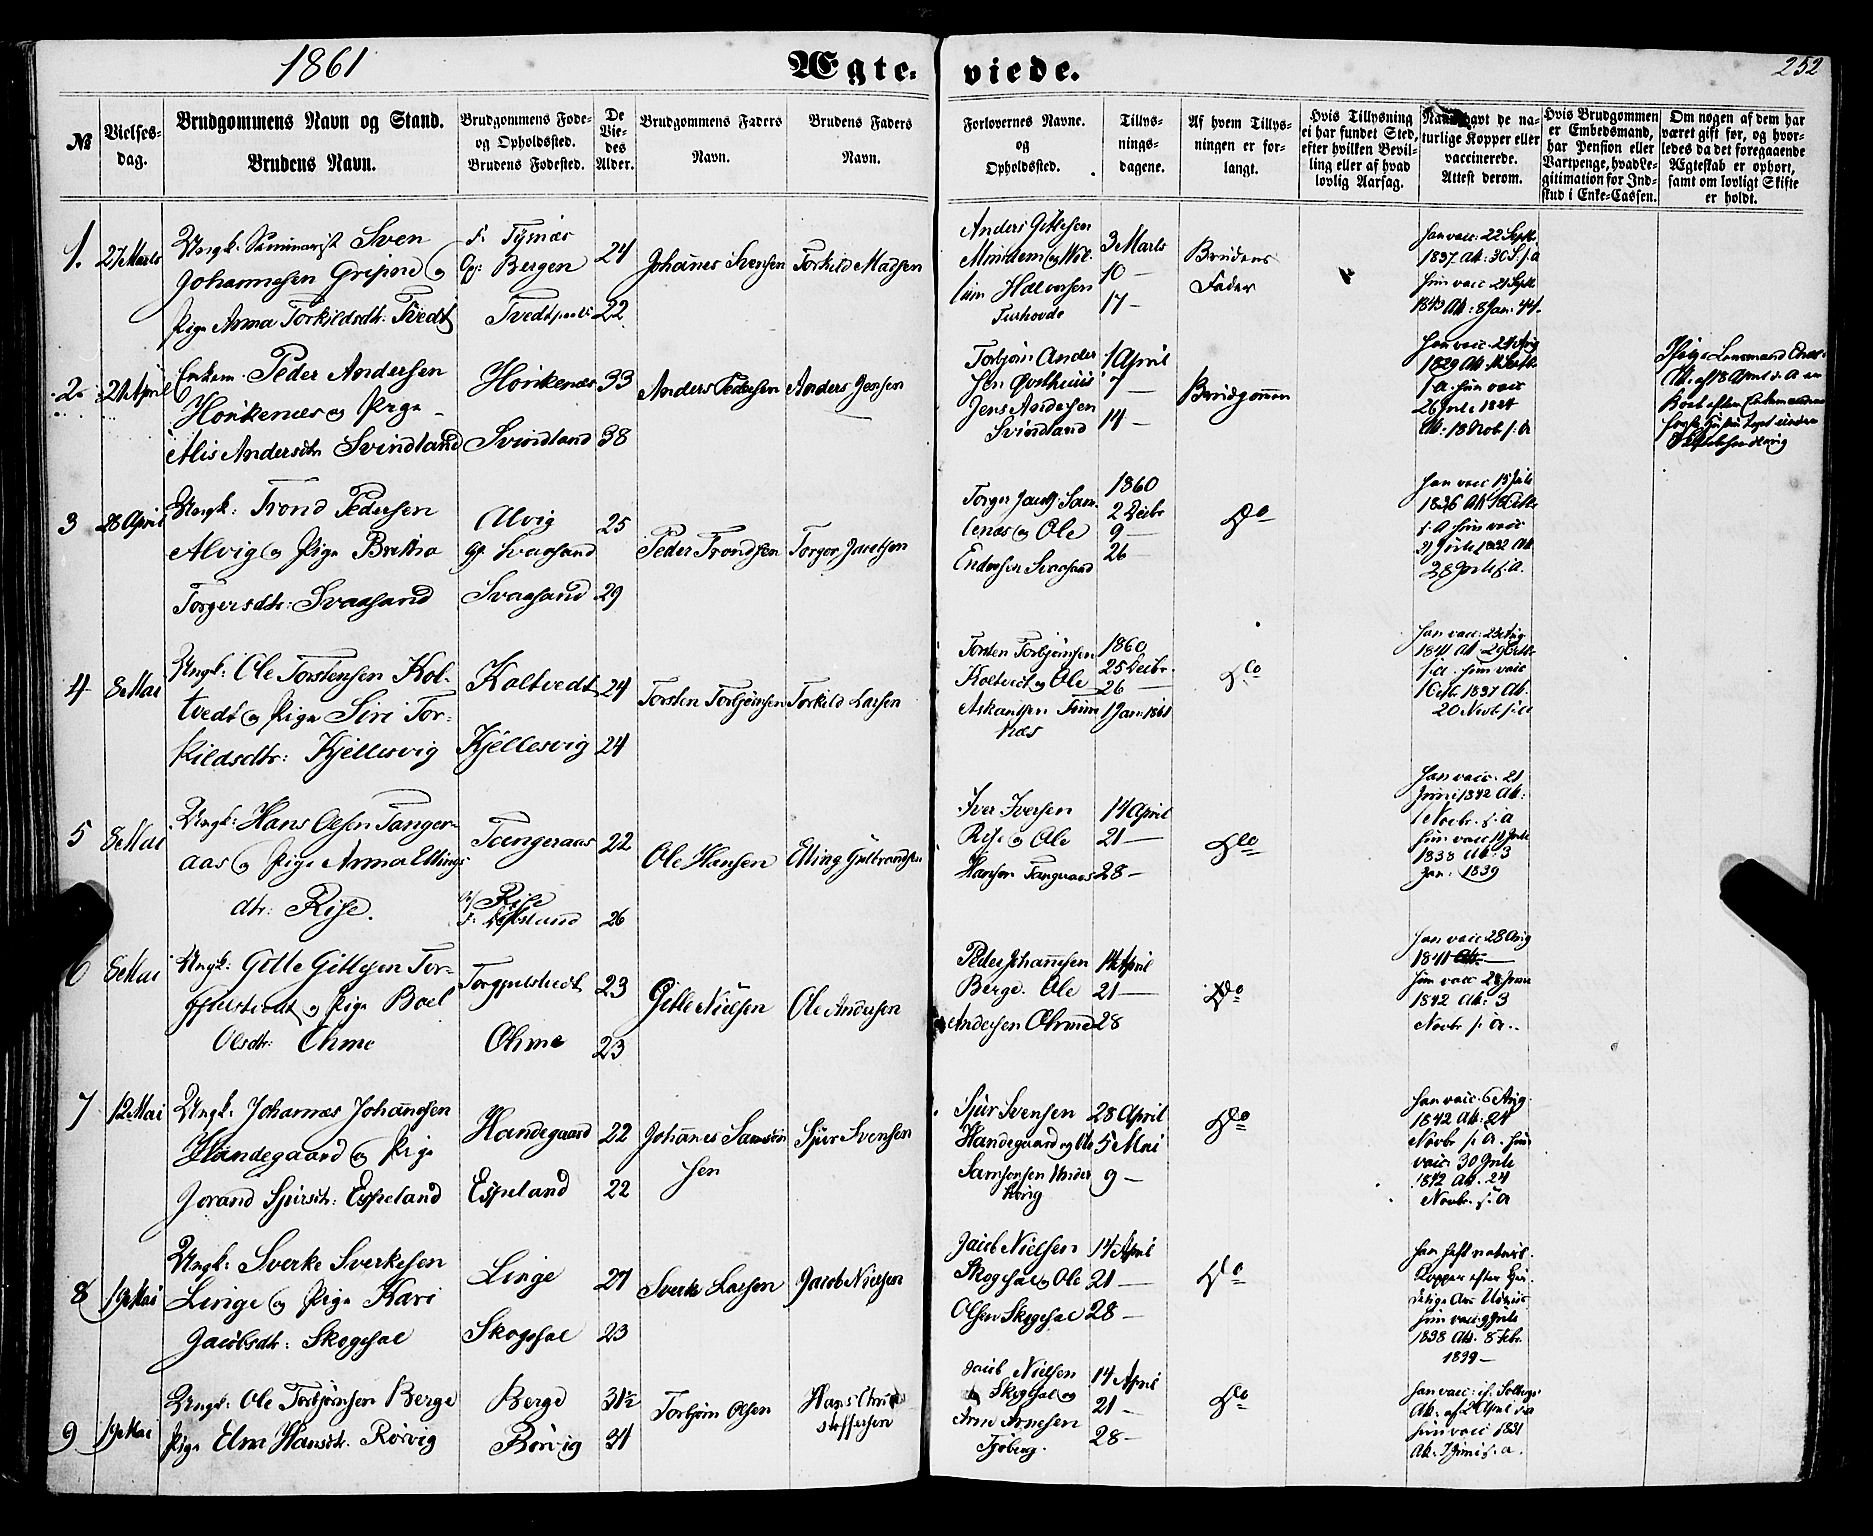 1861
Ægte-
viede.
252
№
Vielses-
dag.
Brudgommens Navn og Stand.
Brudens Navn.
Brudgommens Føde-
og Opholdssted.
Brudens Fødested.
De
Vie-
des
Alder.
Brudgommens Faders
Navn.
Brudens Faders
Navn.
Forlovernes Navne.
og
Opholdssted.
Tillys-
nings-
dagene.
Af hvem Tillys-
ningen er for-
langt.
Hvis Tillysning
ei har fundet Sted,
efter hvilken Bevil-
ling eller af hvad
lovlig Aarsag.
de na-
turlige Kopper eller
vaccinerede.
Attest derom.
Hvis Brudgommen
er Embedsmand,
har Pension eller
Vartpenge, hvad Le-
gitimation for Ind-
skud i Enke-Cassen.
Om nogen af dem har
været gift før, og hvor-
ledes da det foregaaende
Ægteskab er ophørt,
samt om lovligt Skifte
er holdt.
1.
27 Marts
Ungk: Seminarist Sven
Johannesen Gripne og
Pige Anna Torkildsdtr: Tvedt
F. Tysnæs
Op: Bergen
24
22
Johannes Svensen
Torkild Madsen
Anders Gitlesen
Mindem og
Halvorsen
3 Marts
10 —
17 —
Brudens
Fader
Han vacc. 22 Septb
1837 Att: 30 S. s. a
Hun vacc 21 Septb
1843 Att: 8 Jan: 44.
2
21 April
Enkem. Peder Andersen
Honkenæs og Pige
Alis Andersdtr Svindland
Honkenæs
Svindland
33
38
Anders Pedersen
Anders Jensen
Torbjørn Ander
sen Østhuus
Jens Andersen
Svindland
1 April
7 —
14 —
Brudgommen
Han vacc. 24 Aug
s. a. Hun vacc
26 Juli 1824
Att: 18 Octob s. a
3
28 April
Ungk: Trond Pedersen
Alvig og Pige Britha
Torgersdtr: Svaasand
Alvig
Op. Svaasand
Svaasand
25
29
Peder Trondsen
Torger Jacobsen
lenæs og Ole
Endresen Svaasand
1860
2 Decbr
9 —
26 —
Do
Han vacc 15 Juli
s. a. Hun vacc
28 Juli s. a.
4
8 Mai
Ungk: Ole Torstensen Kol-
tvedt og Pige Siri Tor-
kildsdtr: Kjellesvig
Koltvedt
Kjellesvig
24
24
Torsten Torbjørnsen
Torkild Larsen
Torsten Torbjørnsen
Koltvedt og Ole
Askautsen
næs
1860
25 Decbr.
26 —
1 Jan: 1861
Do
s. a. Hun vacc
1 Octb. 1837 Att.
20 Novb. s. a
5
8 Mai
Ungk: Hans Olsen Tanger-
aas og Pige Anna Ellings-
dtr: Rise.
Tangeraas
Rise
22
26
Ole Hansen
Elling Gulbrandsen
Iver Iversen
Rise og Ole
Hansen Tangeraas
14 April
21 —
28 —
Do
Han vacc. 21
Juni 1842 Att:
1 Novbr. s. a
Hun vacc 11 Juli
1838 Att: 3
Jan: 1839
6
8 Mai
Ungk: Gitle Gitlesen Tor-
og Pige Boel
Olsdtr: Ohme
Ohme
23
23
Gitle Nielsen
Ole Andersen
Peder Johannesen
Berge. Ole
Andersen Ohme
14 April
21 —
28
Do
Han vacc 28 Aug
1841
Hun vacc 28 Juni
1842 Att: 3
Novbr s. a.
7
12 Mai
Ungk: Johannes Johannesen
Handegaard og Pige
Jorand Sjursdtr: Espeland
Handegaard
Espeland
22
22
Johannes Samson-
sen
Sjur Svensen
Sjur Svensen
Handegaard og Ole
Samsonsen
28 April
5 Mai
9 —
Do
Han vacc. 6 Aug.
1842 Att: 24
Novbr s. a. Hun
vacc: 30 Juli
1842 Att. 24
Novbr. s. a
8
19 Mai
Ungk: Sverke Sverkesen
Linge og Pige Kari
Jacobsdtr: Skogesal
Linge
Skogesal
27
23
Sverke Larsen
Jacob Nielsen
Jacob Nielsen
Skogesal og Ole
Olsen Skogesal
14 April
21 —
28 —
Do
Han haft naturl.
Kopper efter
Hun vacc 9 Juli
1838 Att. 8 Febr.
1839 —
9
19 Mai
Ungk: Ole Torbjørnsen Berge
Pige Elen Hansdtr. Rørvig
Berge
Rørvig
31½
31
Torbjørn Olsen
Hans Chri
stoffersen
Jacob Nielsen
Skogesal og
Arne Arnesen
Tjoberg.
14 April
21 —
28 —
Do
Att. af 2 April s. a
Hun vacc 1831
Att. 7 Juni s. a.